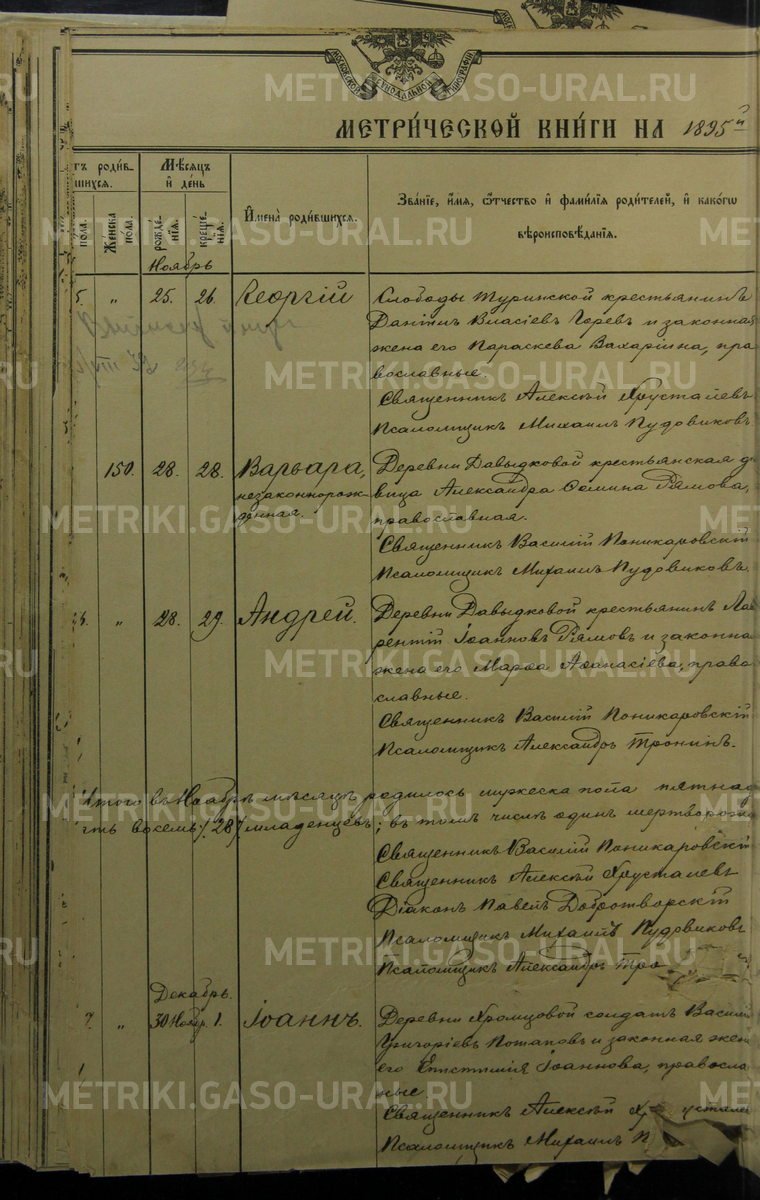 МОСКОВСКОЙ СѴНОДАЛЬНОЙ ТИПОГРАФІИ
МЕТРИЧЕСКОЙ КНИГИ НА 1895й
тъ родив-
шихся.
Мѣсяцъ
и день
пола.
Женска пола.
рожде-
нія.
креще-
нія.
Имена родившихся.
Званіе, имя, отчество и фамилія родителей, и какогω
вѣроисповѣданія.
Ноябрь
5. „ 25. 26. Георгій Слободы Туринской крестьянинъ
Даніилъ Власіевъ Черевъ и законная
жена его Параскева Захаріина, пра
вославные.
Священникъ Алексѣй Хрусталевъ
Псаломщикъ Михаилъ Пудовиковъ
150. 28. 28. Варвара, Деревни Давыдковой крестьянская дѣ
незаконнорож-
денная.
вица Александра Ѳомина Рямова,
православная.
Священникъ Василій Поникаровскій
Псаломщикъ Михаилъ Пудовиковъ.
„ 28. 29. Андрей. Деревни Давыдковой крестьянинъ Лав
рентій Іоанновъ Рямовъ и законна
жена его Марѳа Аѳанасіева, право
славные.
Священникъ Василій Поникаровскій
Псаломщикъ Александръ Тронинъ.
Итого въ Ноябрѣ мѣсяцѣ родилось мужеска пола пятнад
ать восемь /28/ младенцевъ; въ томъ числѣ одинъ мертворожд
Священникъ Василій Поникаровскій
Священникъ Алексѣй Хрусталевъ
Діаконъ Павелъ Добротворскій
Псаломщикъ Михаилъ Пудовиковъ
Псаломщикъ Александръ Тро
Декабрь.
7. „ 30 Ноябр. 1. Іоаннъ. Деревни Хромцовой солдатъ Васил
Григоріевъ Потаповъ и законная жен
его Епистимія Іоаннова, правосла
ные.
Священникъ Алексѣй Хрусталев
Псаломщикъ Михаилъ П
METRIKI.GASO-URAL.RU